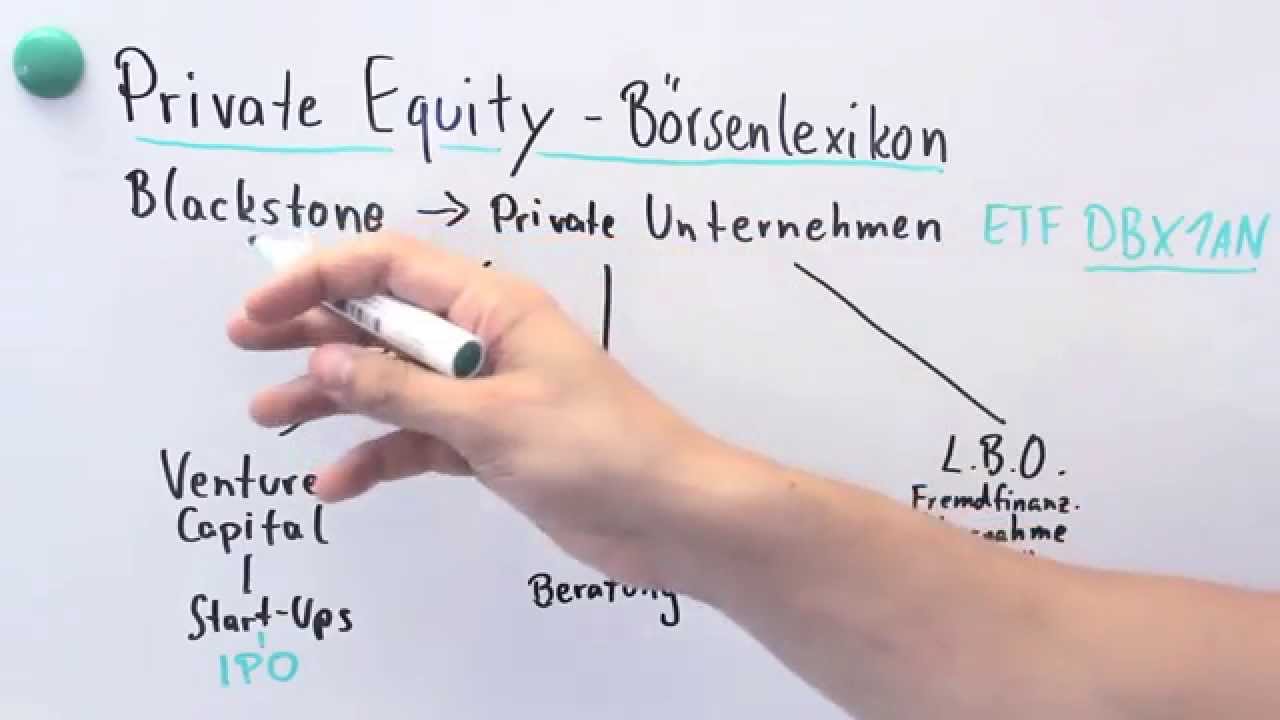 Private Equity - Börsenlexikon
Blackstone → Private Unternehmen ETF DBX1AN
Venture
Capital
Start-Ups
IPO
Beratung
L.B.O.
Fremdfinanz.